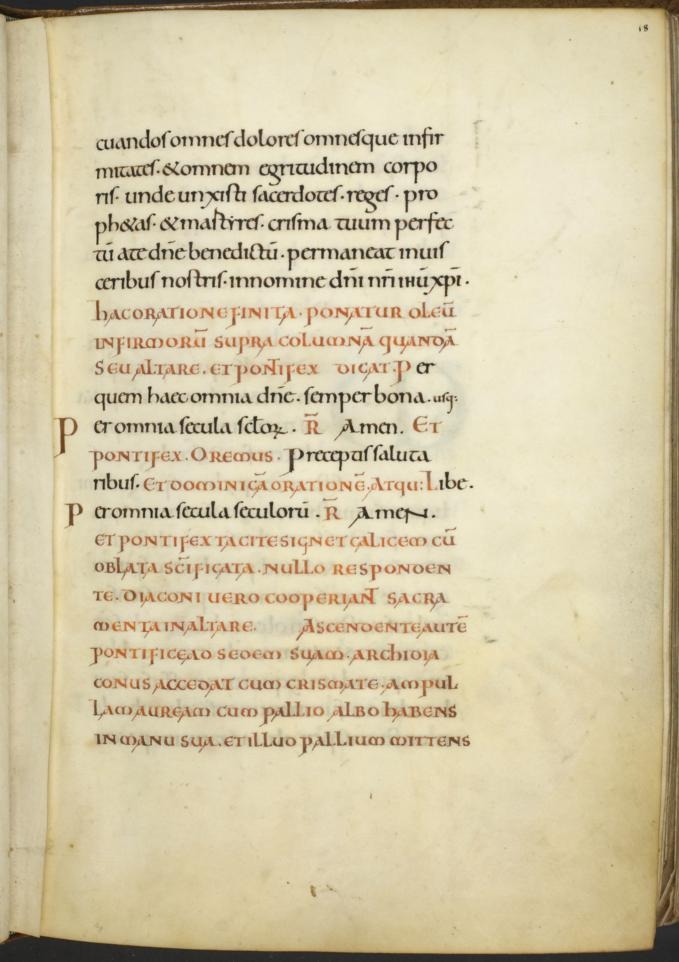 18
cuandos omnes dolores omnesque infir
mitates · & omnem egritudinem corpo
ris · unde unxisti sacerdotes · reges · pro
ph&as · & martyres · crisma tuum perfec
tū a te dn̄e benedictū · permaneat in uis
ceribus nostris · in nomine dn̄i nr̄i ihū xp̄i ·
HAC ORATIONE FINITA · PONATUR OLEŪ
INFIRMORŪ SUPRA COLUMNĀ QUANDĀ
SEU ALTARE . ET PONTIFEX DICAT . Per
quem haec omnia dn̄e . semper bona . usq:
Per omnia secula sc̄loꝝ . R̄ Amen . ET
PONTIFEX . OREMUS . Preceptis saluta
ribus · ET DOMINICĀ ORATIONĒ . ATQU: Libe .
Per omnia secula seculorū . R̄ AmeN .
ET PONTIFEX TACITE SIGNET CALICEM CŪ
OBLATA SC̄IFICATA . NULLO RESPONDEN
TE . DIACONI UERO COOPERIANT SACRA
MENTA IN ALTARE . ASCENDENTE AUTĒ
PONTIFICE AD SEDEM SUAM . ARCHIDIA
CONUS ACCEDAT CUM CRISMATE . AMPUL
LAM AUREAM CUM PALLIO ALBO HABENS
IN MANU SUA . ET ILLUD PALLIUM MITTENS